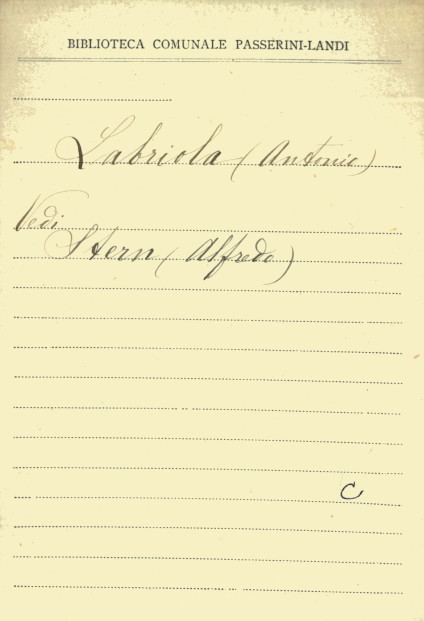 BIBLIOTECA COMUNALE PASSERINI-LANDI
Labriola (Antonio)
Vedi
Stern (Alfredo)
C